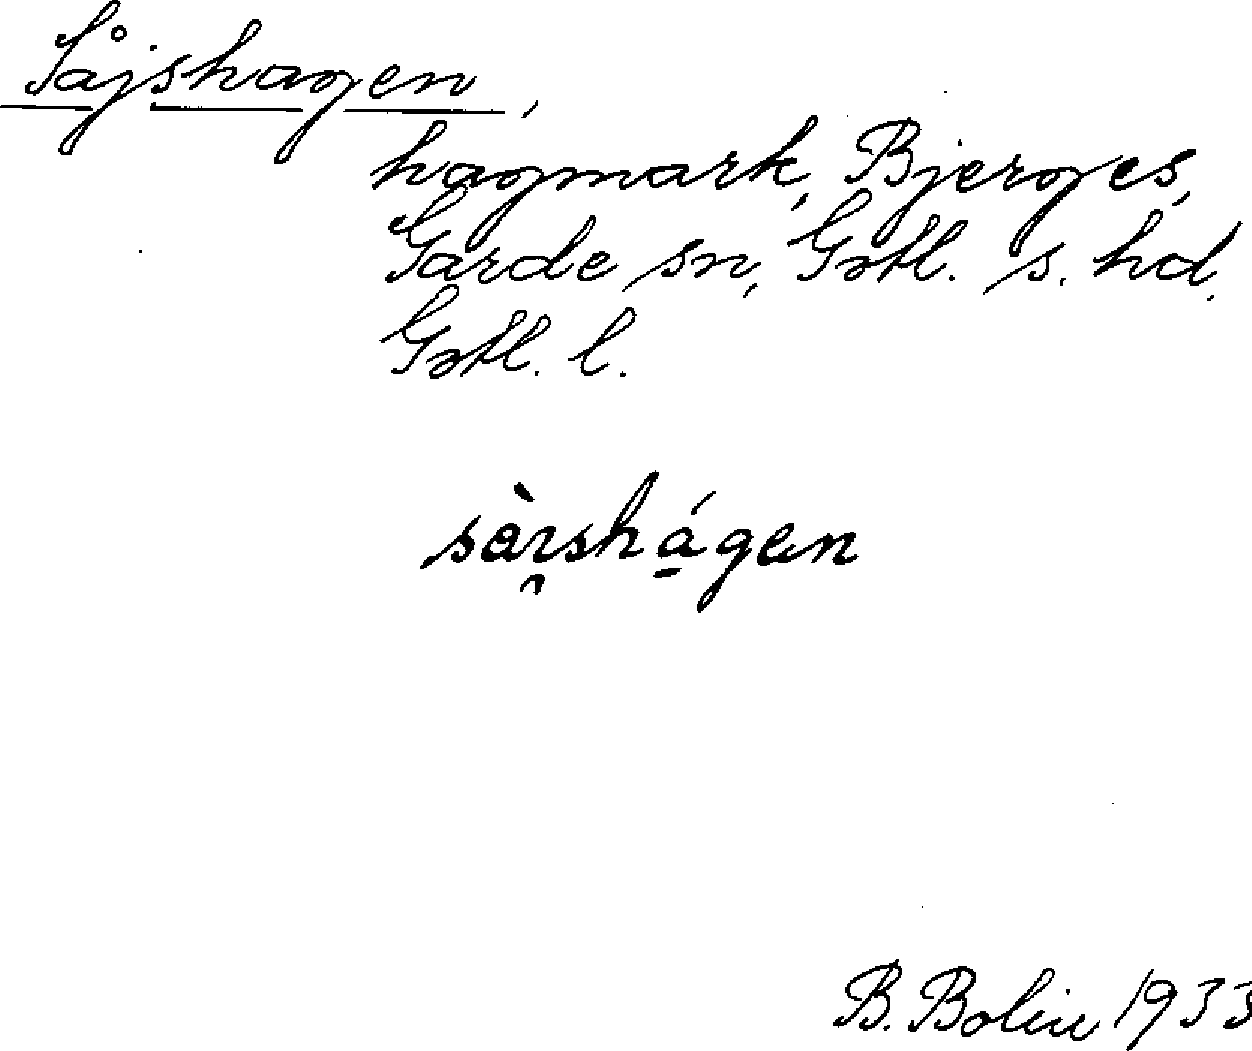 Såjshagen,
hagmark, Bjerges,
Garde sn, Gotl. s. hd.
Gotl. l.
B. Bolin 1933